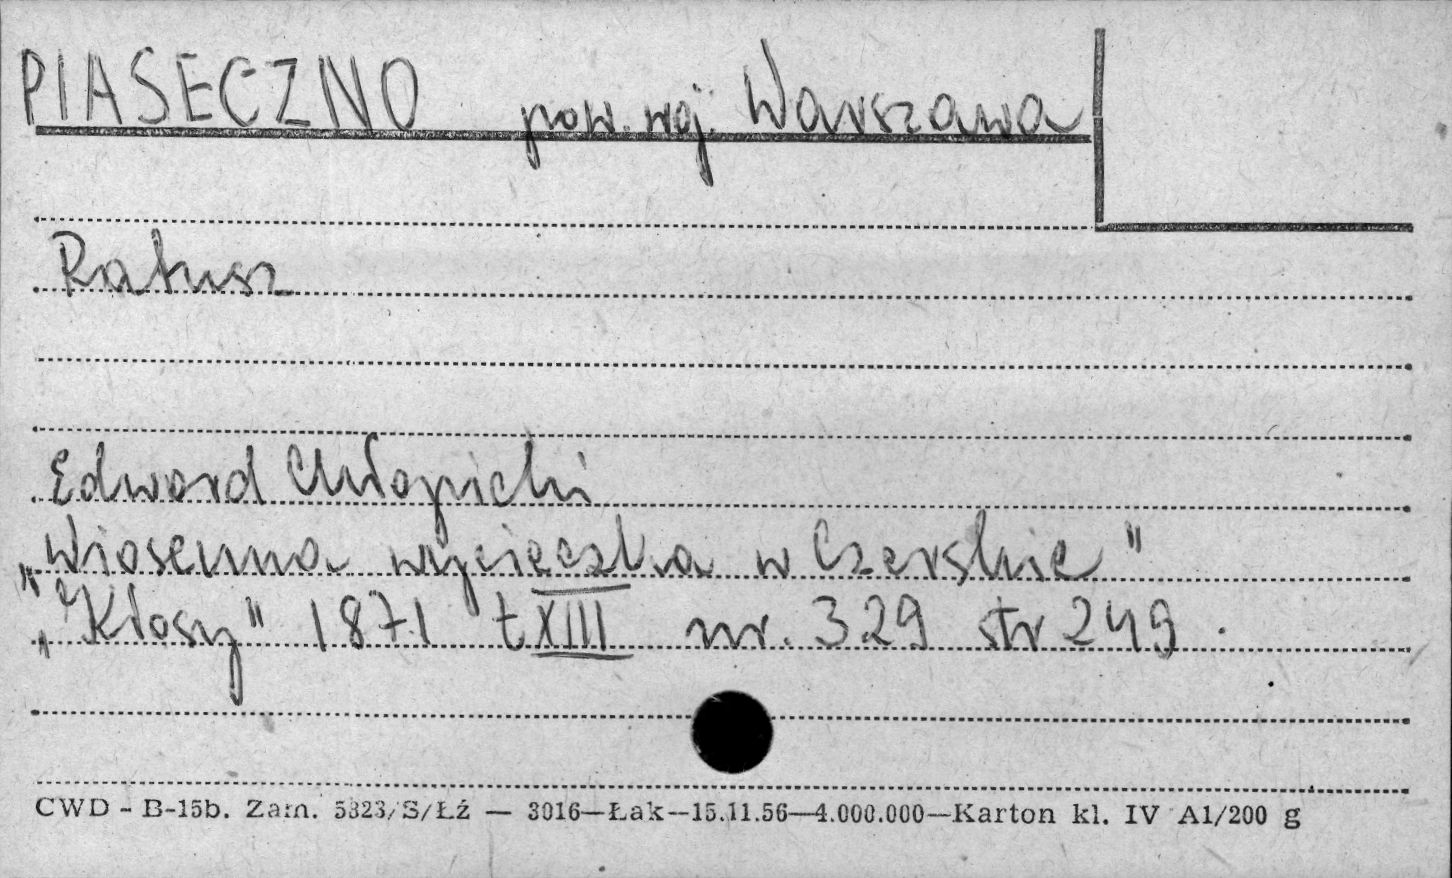 PIASECZNO pow. woj. Warszawa
Ratusz
Edward Chłopicki
„Wiosenna wycieczka w Czerskie"
„Kłosy" 1871 t XIII nr. 329 str 249.
CWD - B-15b. Zam. 5323/S/Łź — 3016—Łak—15.11.56—4.000.000—Karton kl. IV A1/200 g